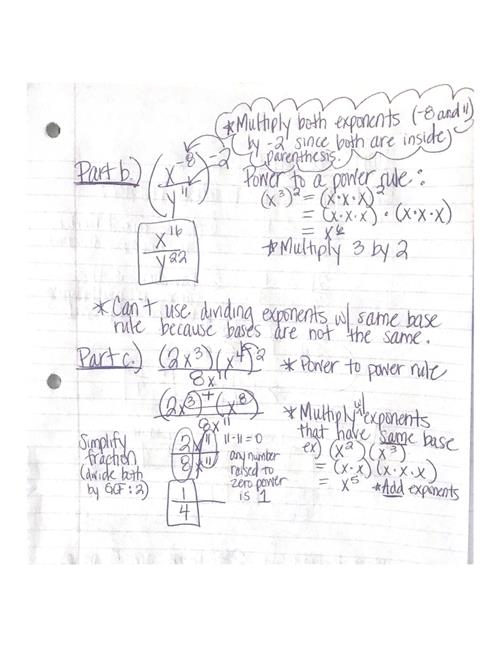 *Multiply both exponents (-8 and 11)
by -2 since both are inside
parenthesis.
Part b.) (x^-8 / y^11)^-2
Power to a power rule:
(x^3)^2 = (x·x·x)^2
= (x·x·x) · (x·x·x)
= x^6
x^16 / y^22
*Multiply 3 by 2
*Can't use dividing exponents w/ same base
rule because bases are not the same.
Part c.) (2x^3)(x^4)^2 / 8x^11
*Power to power rule
(2x^3)+(x^8) / 8x^11
*Multiply w/ exponents
that have same base
ex) (x^2)(x^3)
= (x·x)(x·x·x)
= x^5 *Add exponents
Simplify
fraction
(divide both
by GCF: 2)
2x^11 / 8x^11
11-11=0
any number
raised to
zero power
is 1
1 / 4